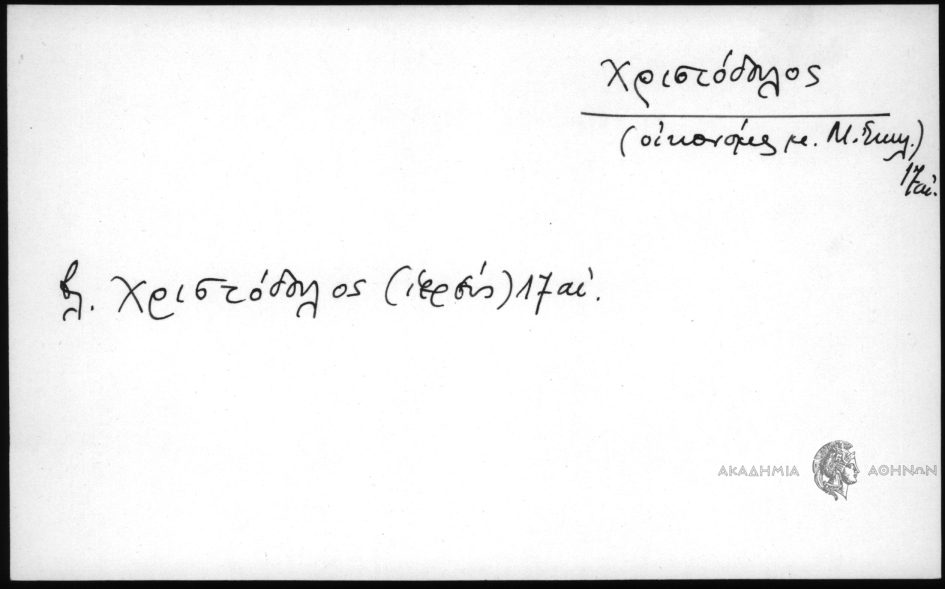 Χριστόδουλος
(οἰκονόμος μ. Μ. Ἐκκλ.)
17 αἰ.
βλ. Χριστόδουλος (ἱερεύς) 17 αἰ.
ΑΚΑΔΗΜΙΑ ΑΘΗΝΩΝ